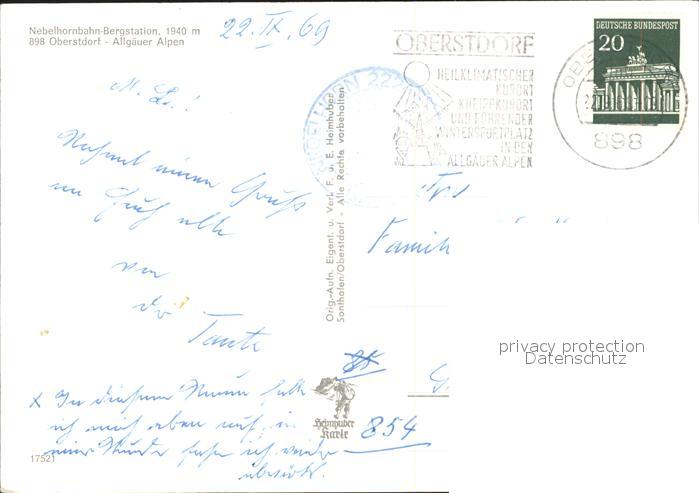 Nebelhornbahn-Bergstation, 1940 m
898 Oberstdorf - Allgäuer Alpen
22. IX. 69
OBERSTDORF
HEILKLIMATISCHER
KURORT
KNEIPPKURORT
UND FÜHRENDER
WINTERSPORTPLATZ
IN DEN
ALLGÄUER ALPEN
DEUTSCHE BUNDESPOST
20
898
M. L.!
Nehmt einen Gruß
an Euch alle
von
der
Tante
x In diesem Raum
ich mich eben auf, in
einer Stunde ich
Orig.-Aufn. Eigent. u. Verl. F. u. E. Heimhuber
Sonthofen/Oberstdorf - Alle Rechte vorbehalten
Famil
854
Heimhuber
Karte
17521
privacy protection
Datenschutz